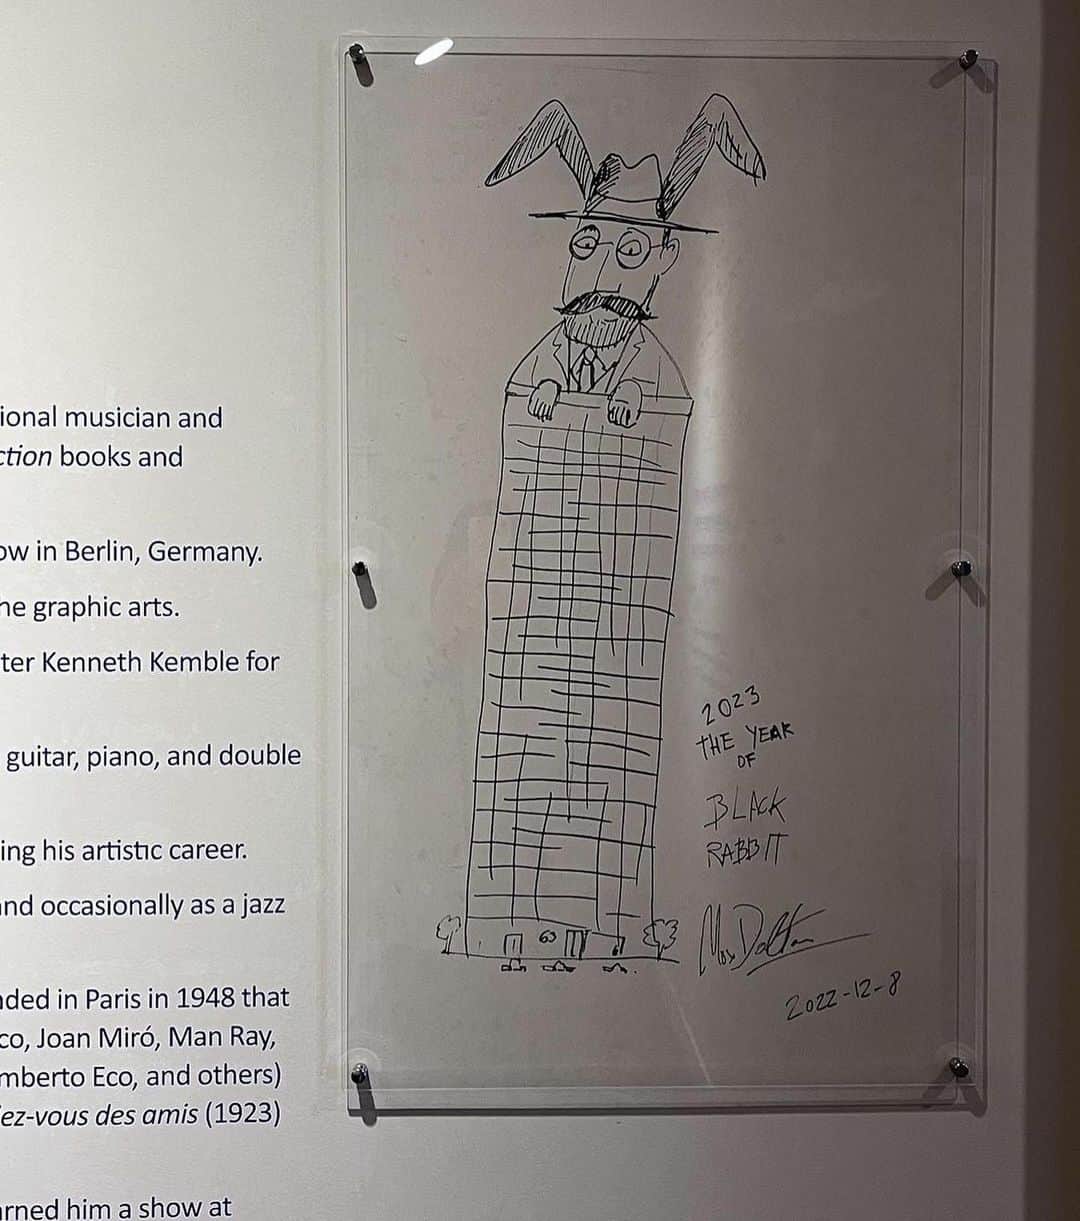 ional musician and
ction books and
ow in Berlin, Germany.
he graphic arts.
ter Kenneth Kemble for
guitar, piano, and double
ing his artistic career.
and occasionally as a jazz
nded in Paris in 1948 that
co, Joan Miró, Man Ray,
mberto Eco, and others)
ez-vous des amis (1923)
arned him a show at
2023
THE YEAR
OF
BLACK
RABBIT
Max Dalton
2022-12-8